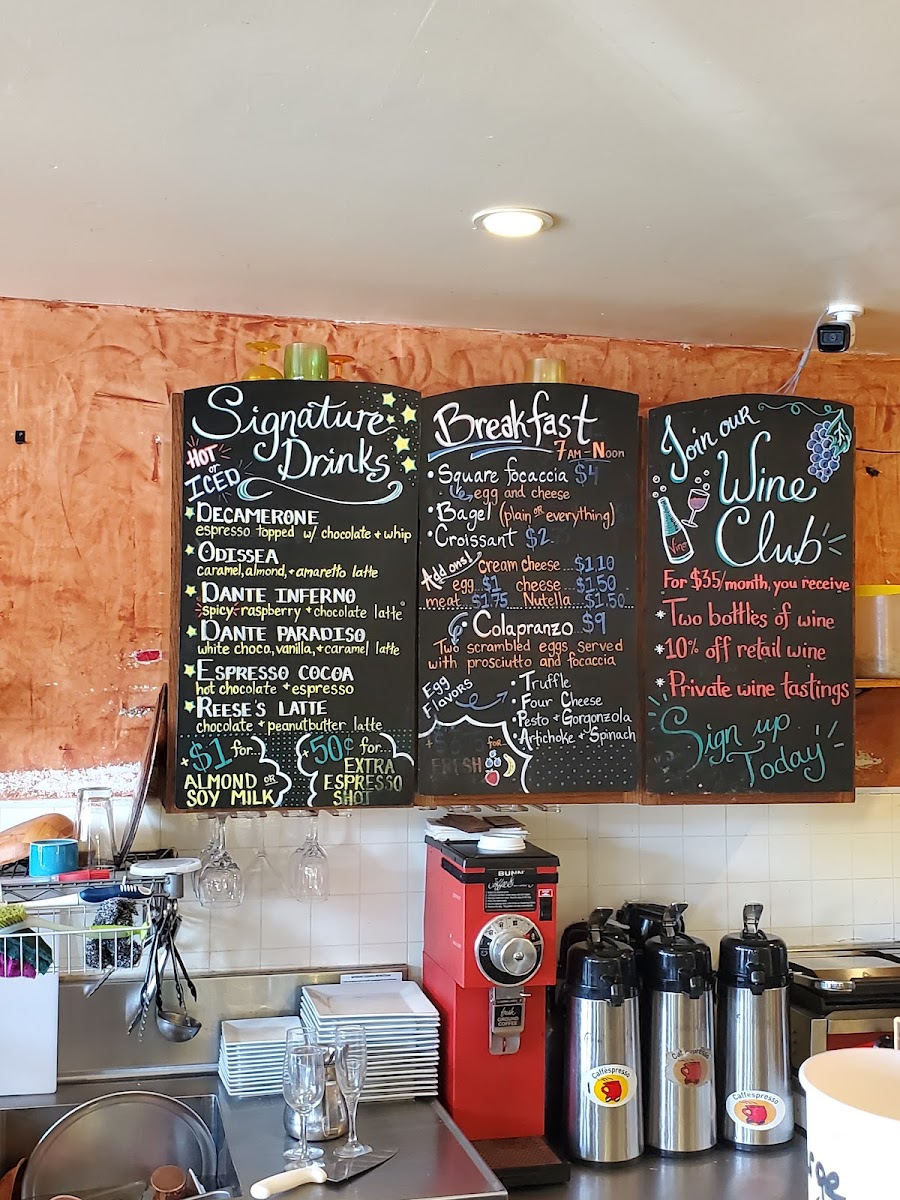 Signature
Drinks
HOT
or
ICED
DECAMERONE
espresso topped w/ chocolate + whip
ODISSEA
caramel, almond, + amaretto latte
DANTE INFERNO
spicy raspberry + chocolate latte
DANTE PARADISO
white choco, vanilla, + caramel latte
ESPRESSO COCOA
hot chocolate + espresso
REESE'S LATTE
chocolate + peanutbutter latte
+$1 for...
ALMOND OR
SOY MILK
+50¢ for...
EXTRA
ESPRESSO
SHOT
Breakfast
7AM-NOON
• Square focaccia $4
egg and cheese
• Bagel (plain OR everything)
• Croissant $2
Add ons!
cream cheese...$1.10
egg $1 cheese....$1.50
meat..$1.75 Nutella..$1.50
• Colapranzo...$9
Two scrambled eggs served
with prosciutto and focaccia
Egg
Flavors
• Truffle
• Four Cheese
• Pesto + Gorgonzola
• Artichoke + Spinach
for...
FRESH
Join our
Wine
Club
Wine
For $35/month, you receive
*Two bottles of wine
*10% off retail wine
*Private wine tastings
Sign up
Today
BUNN
Coffee
fresh
GROUND
COFFEE
Caffespresso
Caffespresso
Caffespresso